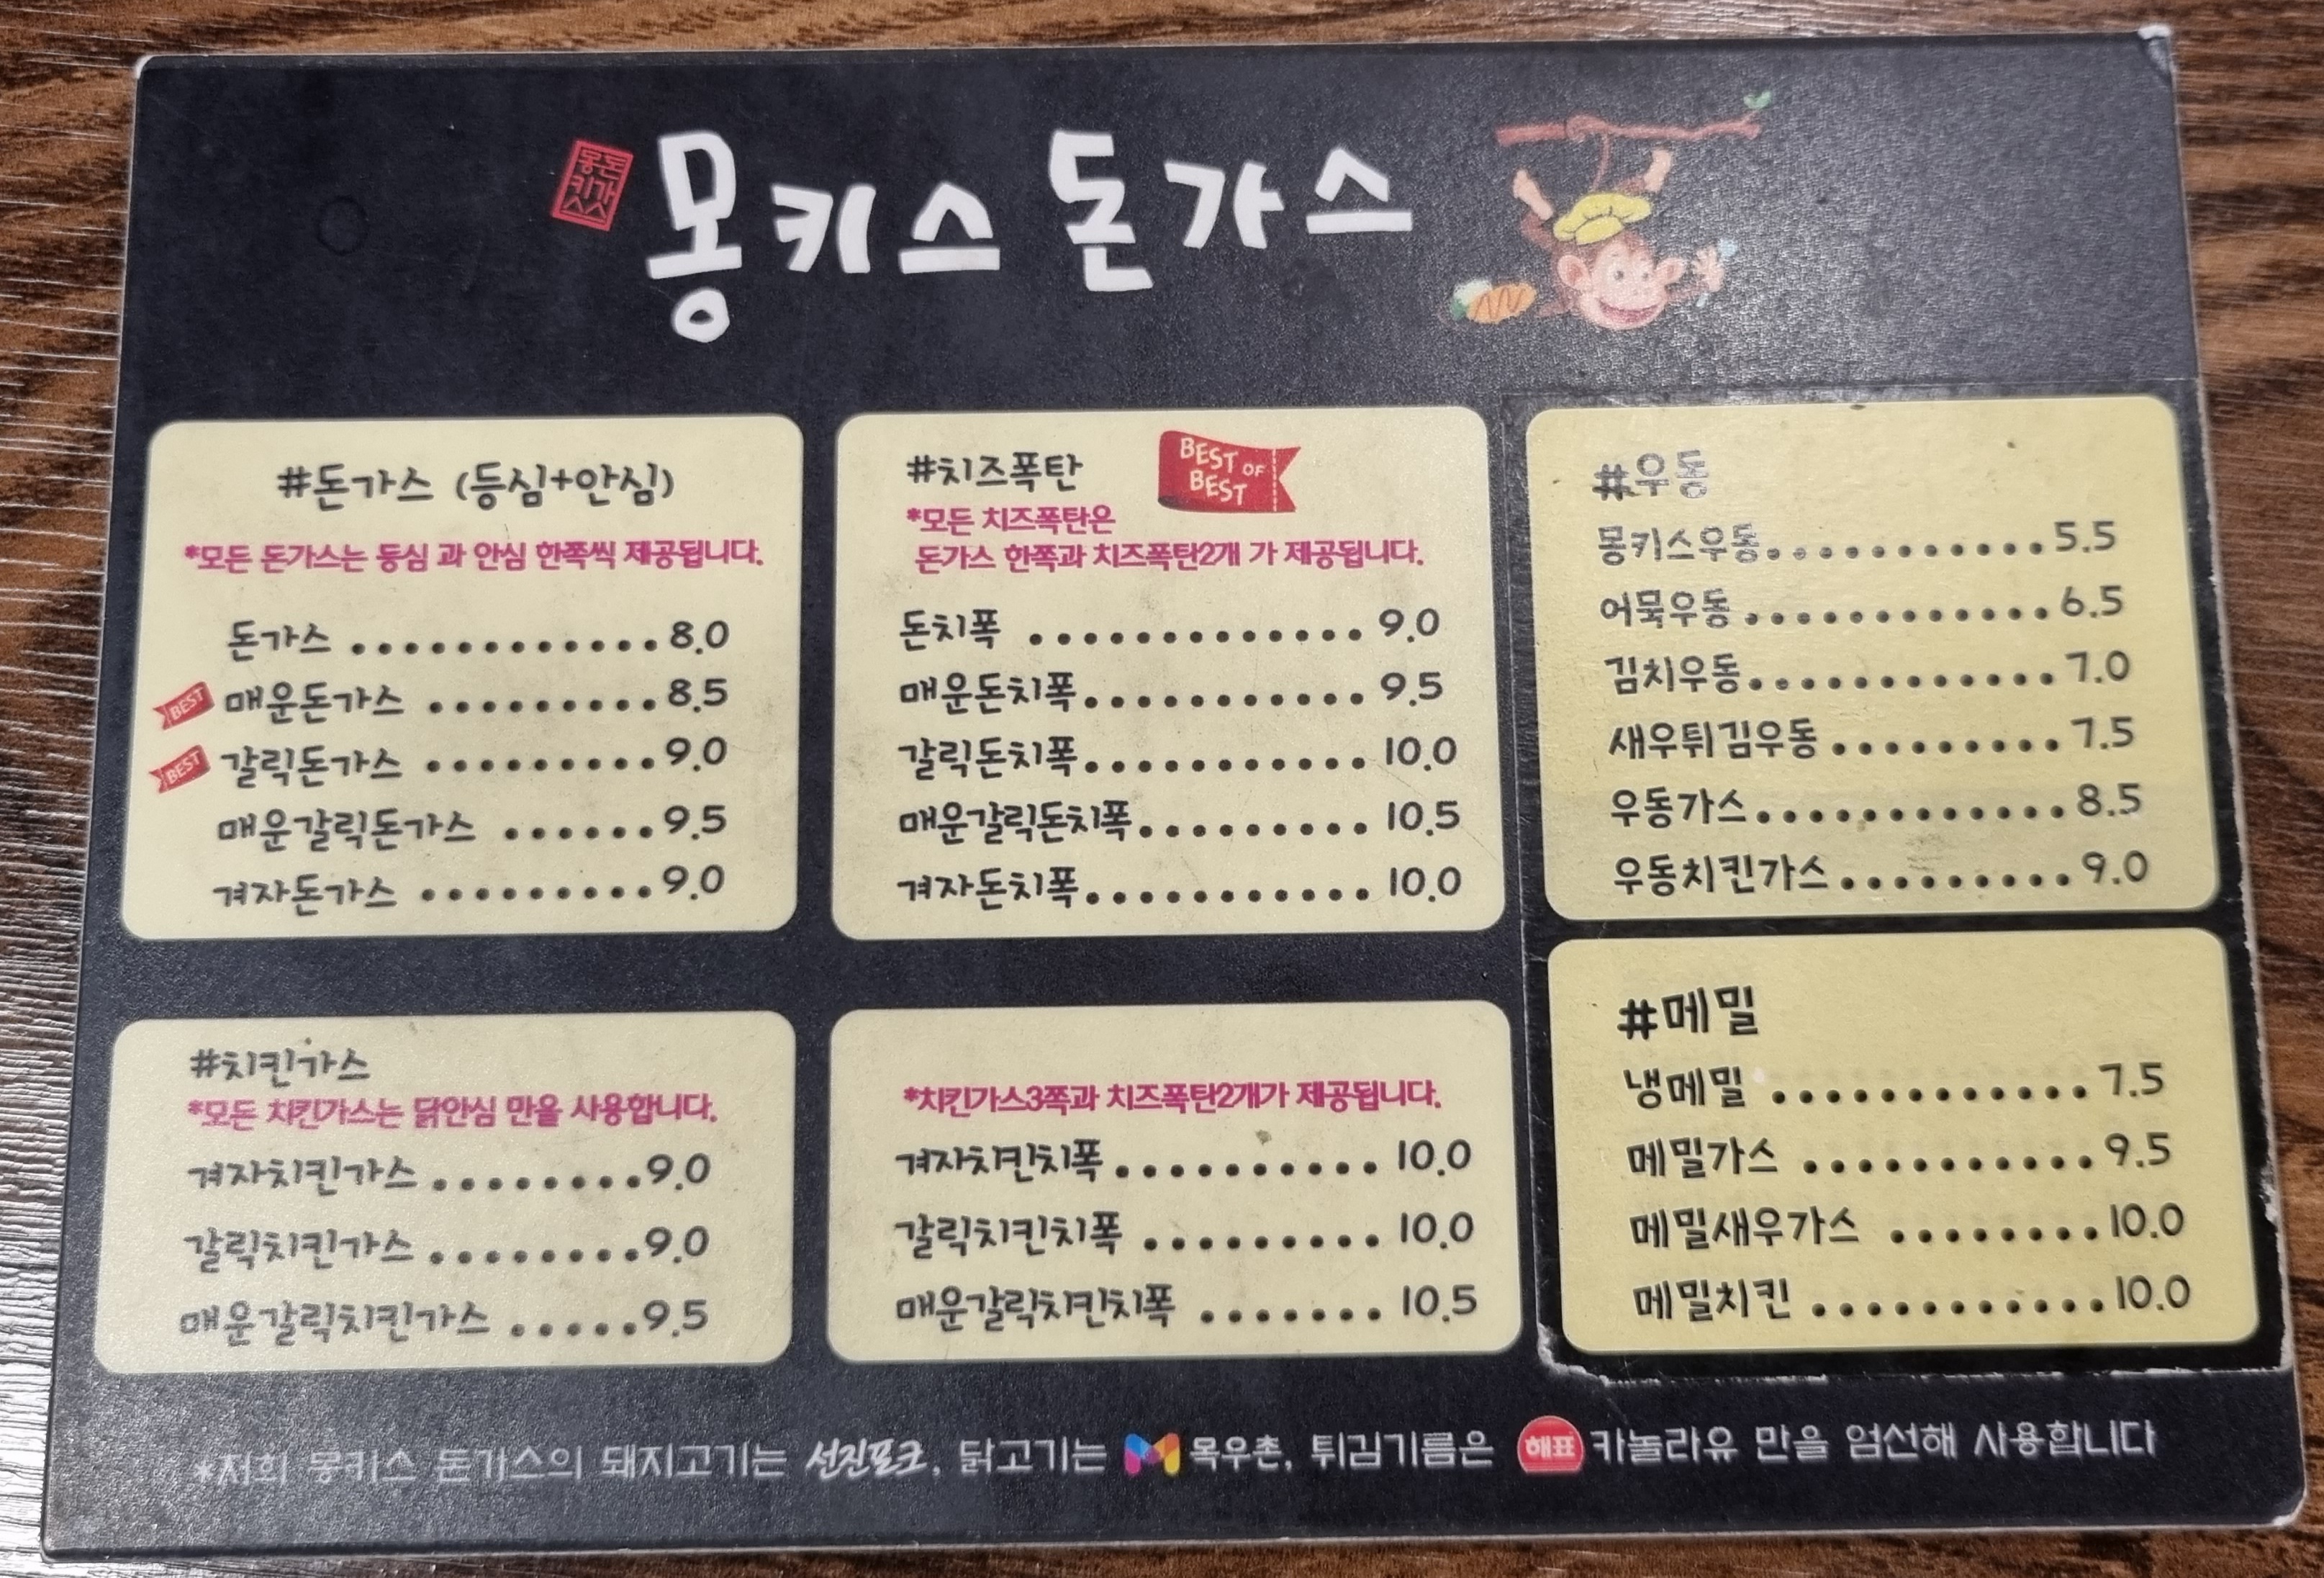 몽돈
키가
스스
몽키스 돈가스
#돈가스 (등심+안심)
*모든 돈가스는 등심 과 안심 한쪽씩 제공됩니다.
돈가스 ............. 8.0
BEST 매운돈가스 .......... 8.5
BEST 갈릭돈가스 .......... 9.0
매운갈릭돈가스 ...... 9.5
겨자돈가스 .......... 9.0
#치즈폭탄
BEST OF
BEST
*모든 치즈폭탄은
돈가스 한쪽과 치즈폭탄2개 가 제공됩니다.
돈치폭 ............. 9.0
매운돈치폭........... 9.5
갈릭돈치폭........... 10.0
매운갈릭돈치폭......... 10.5
겨자돈치폭........... 10.0
#우동
몽키스우동........... 5.5
어묵우동............ 6.5
김치우동............ 7.0
새우튀김우동......... 7.5
우동가스............ 8.5
우동치킨가스......... 9.0
#치킨가스
*모든 치킨가스는 닭안심 만을 사용합니다.
겨자치킨가스 ........ 9.0
갈릭치킨가스 ........ 9.0
매운갈릭치킨가스 ..... 9.5
*치킨가스3쪽과 치즈폭탄2개가 제공됩니다.
겨자치킨치폭.......... 10.0
갈릭치킨치폭 ......... 10.0
매운갈릭치킨치폭 ....... 10.5
#메밀
냉메밀 ............ 7.5
메밀가스 ........... 9.5
메밀새우가스 ........ 10.0
메밀치킨 ........... 10.0
*저희 몽키스 돈가스의 돼지고기는 선진포크, 닭고기는 목우촌, 튀김기름은 해표 카놀라유 만을 엄선해 사용합니다